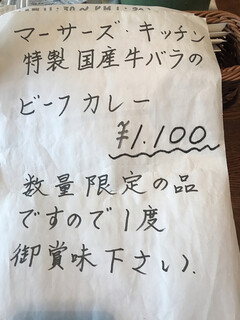 マーサーズ・キッチン
特製国産牛バラの
ビーフカレー
¥1.100
数量限定の品
ですので1度
御賞味下さい.